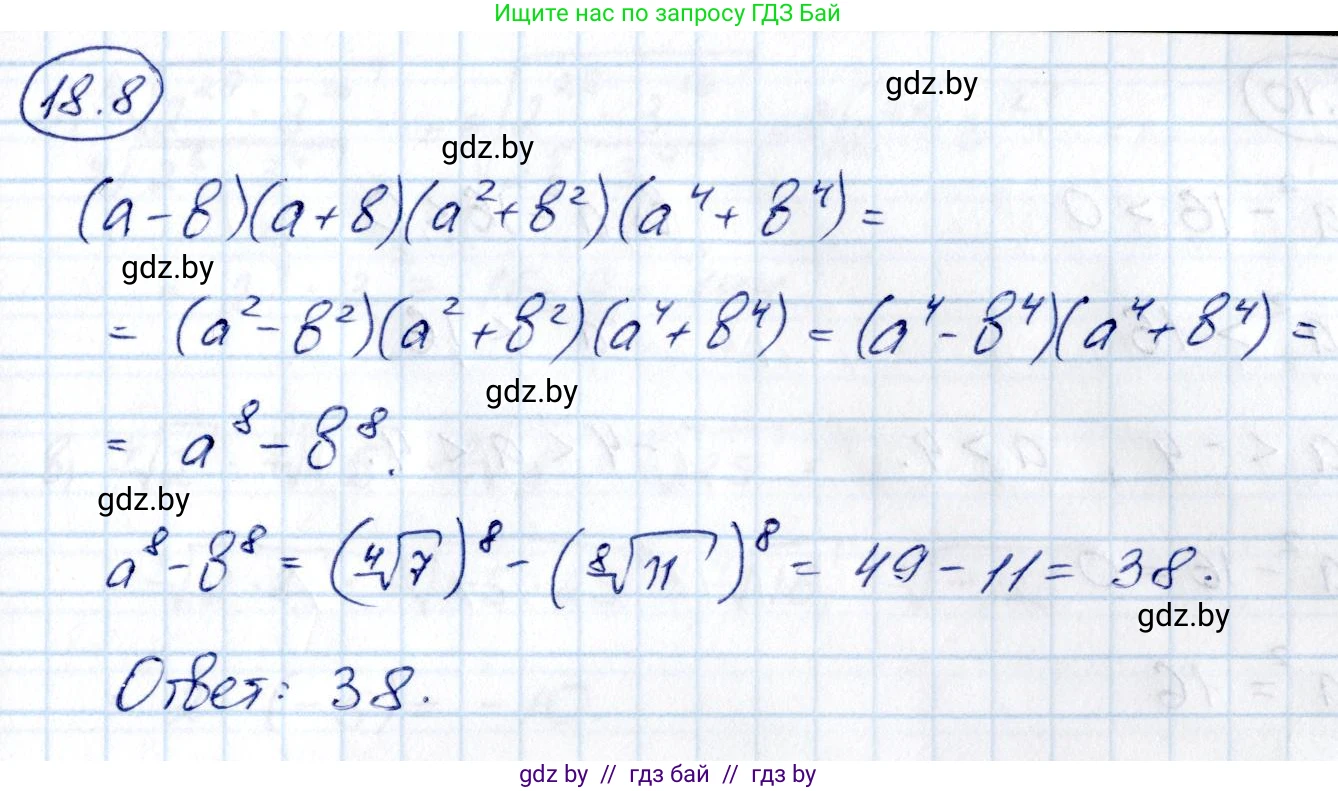 Ищите нас по запросу ГДЗ Бай
18.8
gdz.by
gdz.by
(a-b)(a+b)(a²+b²)(a⁴+b⁴)=
gdz.by
= (a²-b²)(a²+b²)(a⁴+b⁴) = (a⁴-b⁴)(a⁴+b⁴) =
gdz.by
= a⁸-b⁸.
gdz.by
a⁸-b⁸ = (⁴√7)⁸ - (⁸√11)⁸ = 49-11 = 38.
gdz.by
Ответ: 38.
gdz by // гдз бай // гдз by